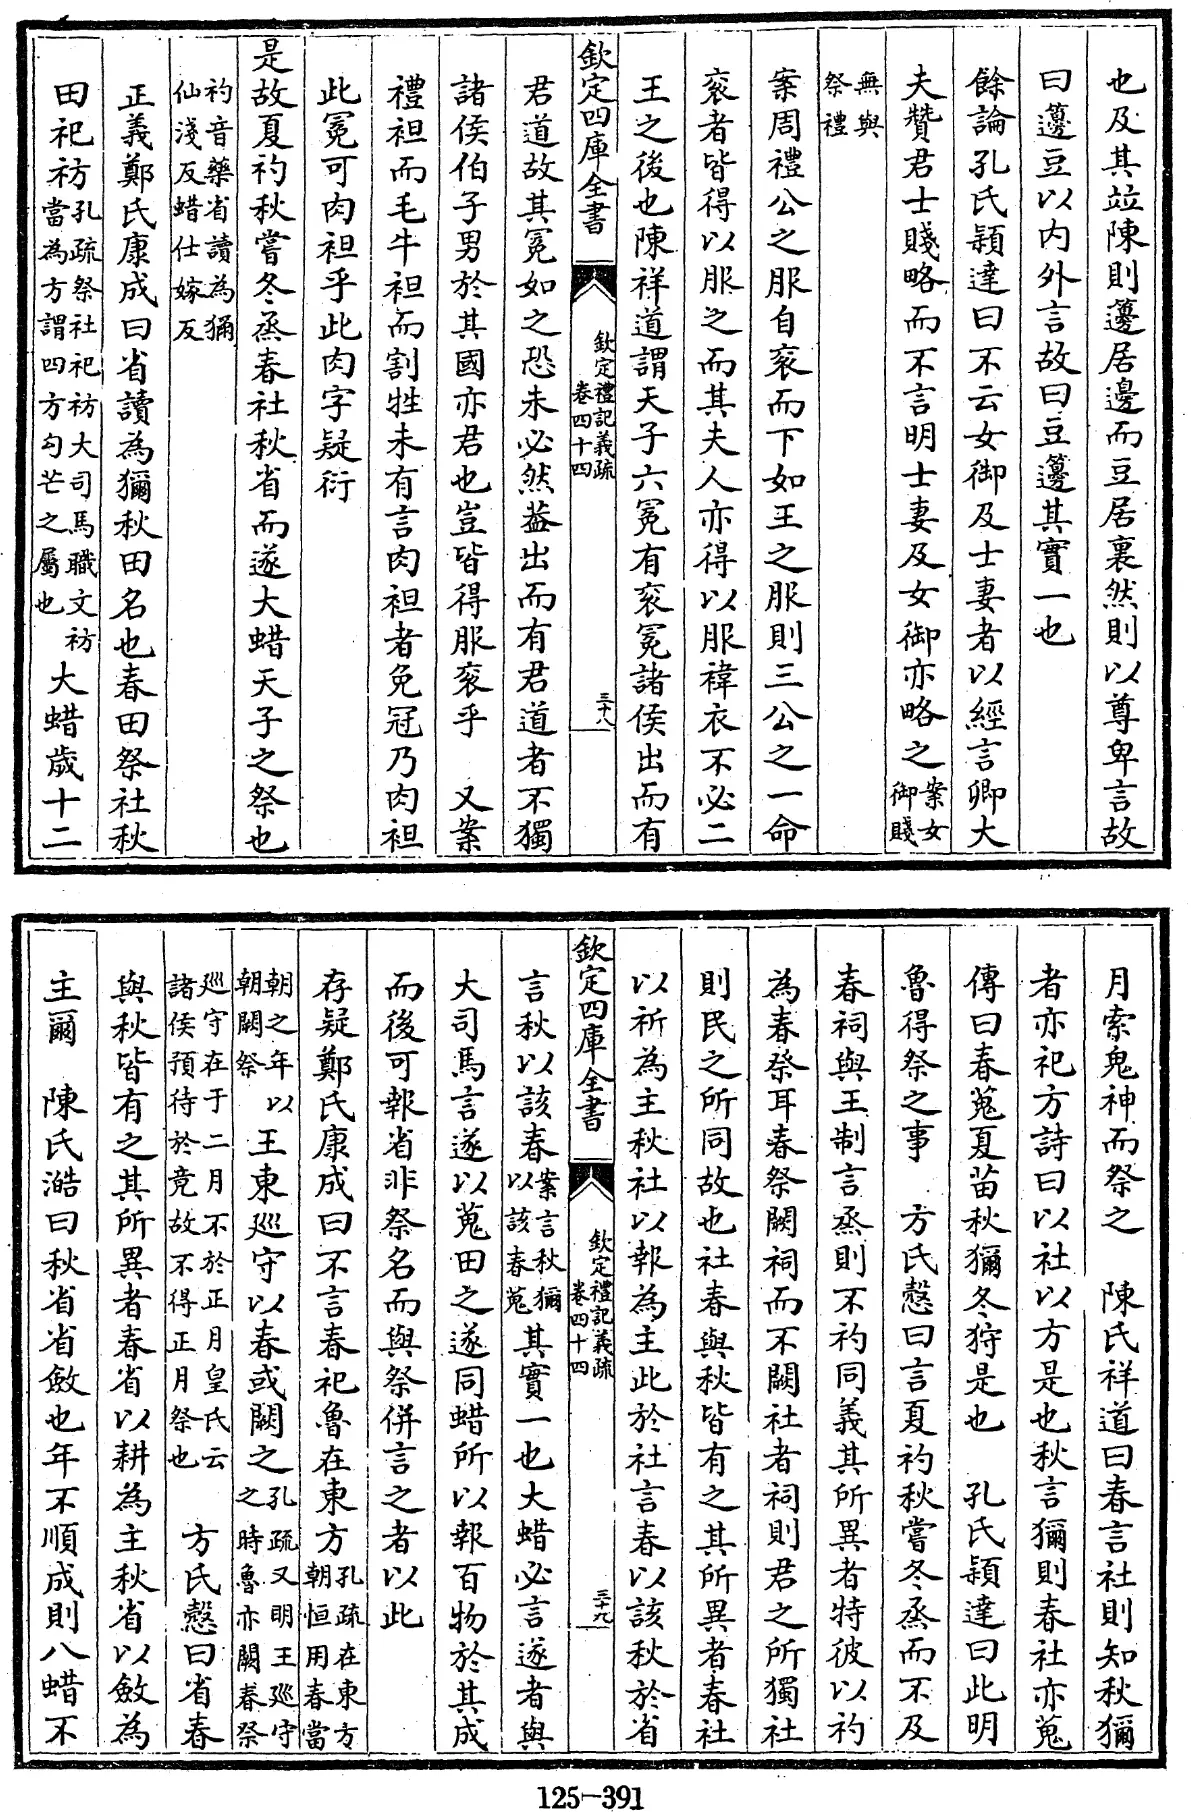 也及其竝陳則籩居邊而豆居裏然則以尊卑言故
曰籩豆以内外言故曰豆籩其實一也
餘論孔氏穎達曰不云女御及士妻者以經言卿大
夫贊君士賤略而不言明士妻及女御亦略之案女御賤
無與祭禮
案周禮公之服自衮而下如王之服則三公之一命
衮者皆得以服之而其夫人亦得以服褘衣不必二
王之後也陳祥道謂天子六冕有衮冕諸侯出而有
欽定四庫全書 欽定禮記義疏 卷四十四 三十八
君道故其冕如之恐未必然葢出而有君道者不獨
諸侯伯子男於其國亦君也豈皆得服衮乎 又案
禮袒而毛牛袒而割牲未有言肉袒者免冠乃肉袒
此冕可肉袒乎此肉字疑衍
是故夏礿秋嘗冬烝春社秋省而遂大蜡天子之祭也
礿音藥省讀為獮仙淺反蜡仕嫁反
正義鄭氏康成曰省讀為獮秋田名也春田祭社秋
田祀祊孔疏祭社祀祊大司馬職文祊當為方謂四方勾芒之屬也大蜡歲十二
月索鬼神而祭之 陳氏祥道曰春言社則知秋獮
者亦祀方詩曰以社以方是也秋言獮則春社亦蒐
傳曰春蒐夏苗秋獮冬狩是也 孔氏穎達曰此明
魯得祭之事 方氏慤曰言夏礿秋嘗冬烝而不及
春祠與王制言烝則不礿同義其所異者特彼以礿
為春祭耳春祭闕祠而不闕社者祠則君之所獨社
則民之所同故也社春與秋皆有之其所異者春社
以祈為主秋社以報為主此於社言春以該秋於省
欽定四庫全書 欽定禮記義疏 卷四十四 三十九
言秋以該春案言秋獮以該春蒐其實一也大蜡必言遂者與
大司馬言遂以蒐田之遂同蜡所以報百物於其成
而後可報省非祭名而與祭併言之者以此
存疑鄭氏康成曰不言春祀魯在東方孔疏在東方朝恒用春當
朝之年以朝闕祭王東巡守以春或闕之孔疏又明王巡守之時魯亦闕春祭
巡守在于二月不於正月皇氏云諸侯預待於竟故不得正月祭也 方氏慤曰省春
與秋皆有之其所異者春省以耕為主秋省以斂為
主爾 陳氏澔曰秋省省斂也年不順成則八蜡不
125—391